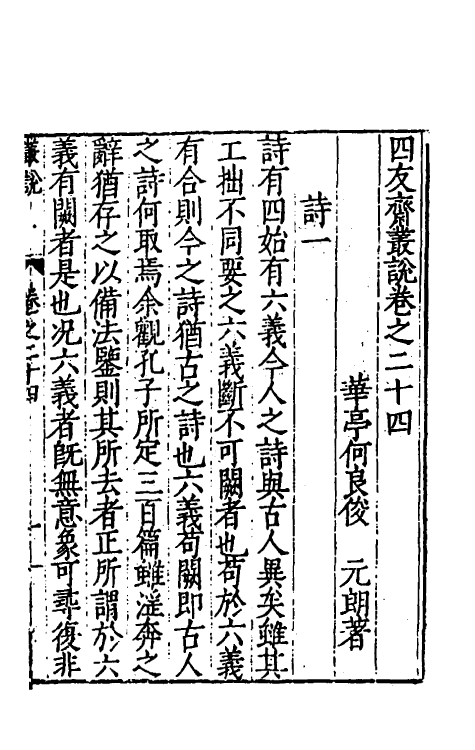 四友齋叢說卷之二十四
華亭何良俊　元朗著
詩一
詩有四始有六義今人之詩與古人異矣雖其
工拙不同要之六義斷不可闕者也苟於六義
有合則今之詩猶古之詩也六義苟闕即古人
之詩何取焉余觀孔子所定三百篇雖淫奔之
辭猶存之以備法鑒則其所去者正所謂於六
義有闕者是也况六義者既無意象可尋復非
叢說　卷之二十四　一